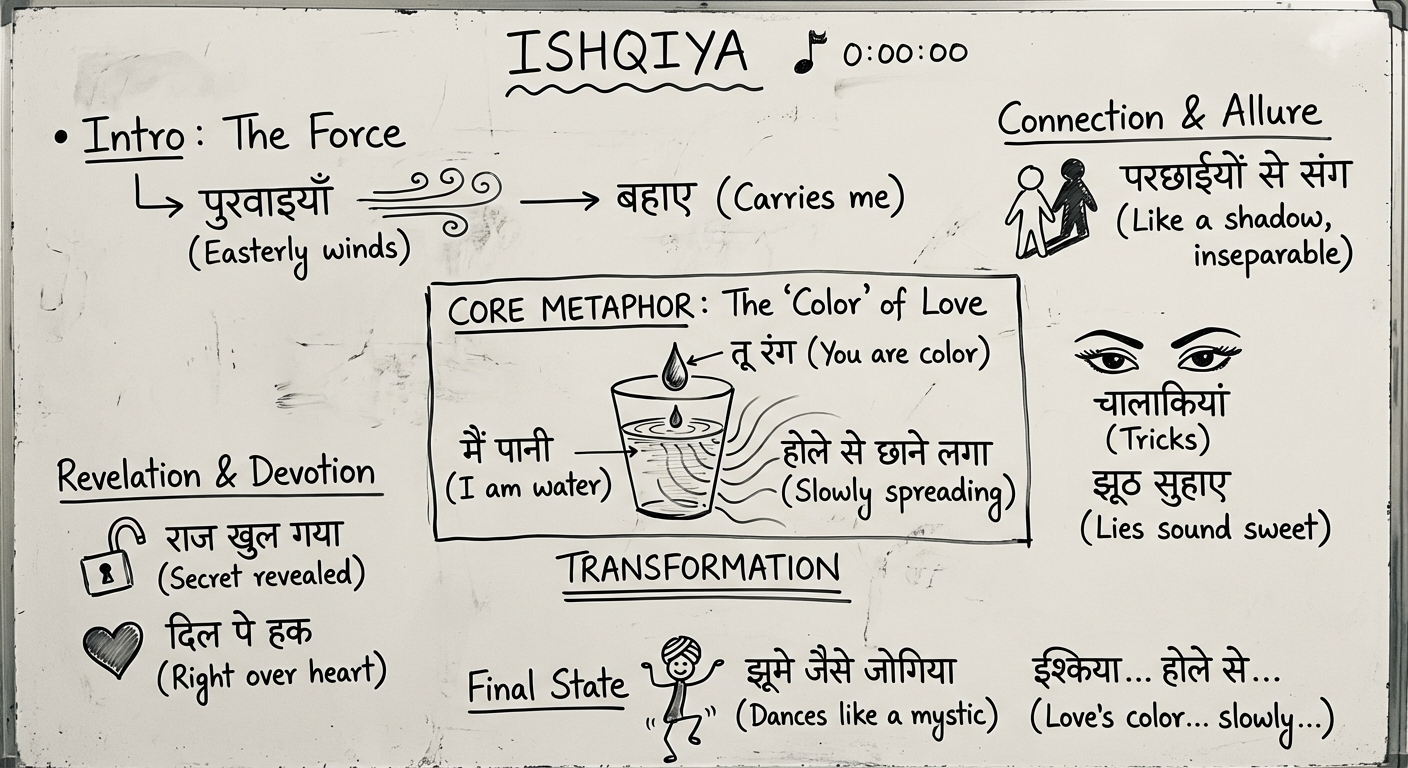 ISHQIYA ♪ 0:00:00
• Intro: The Force
पुरवाइयाँ
(Easterly winds)
बहाए (Carries me)
Connection & Allure
परछाईयों से संग
(Like a shadow,
inseparable)
CORE METAPHOR: The ‘Color’ of Love
तू रंग (You are color)
मैं पानी
(I am water)
होले से छाने लगा
(Slowly spreading)
चालाकियां
(Tricks)
झूठ सुहाए
(Lies sound sweet)
Revelation & Devotion
राज खुल गया
(Secret revealed)
दिल पे हक
(Right over heart)
TRANSFORMATION
Final State
झूमे जैसे जोगिया
(Dances like a mystic)
ईश्किया... होले से...
(Love's color... slowly...)